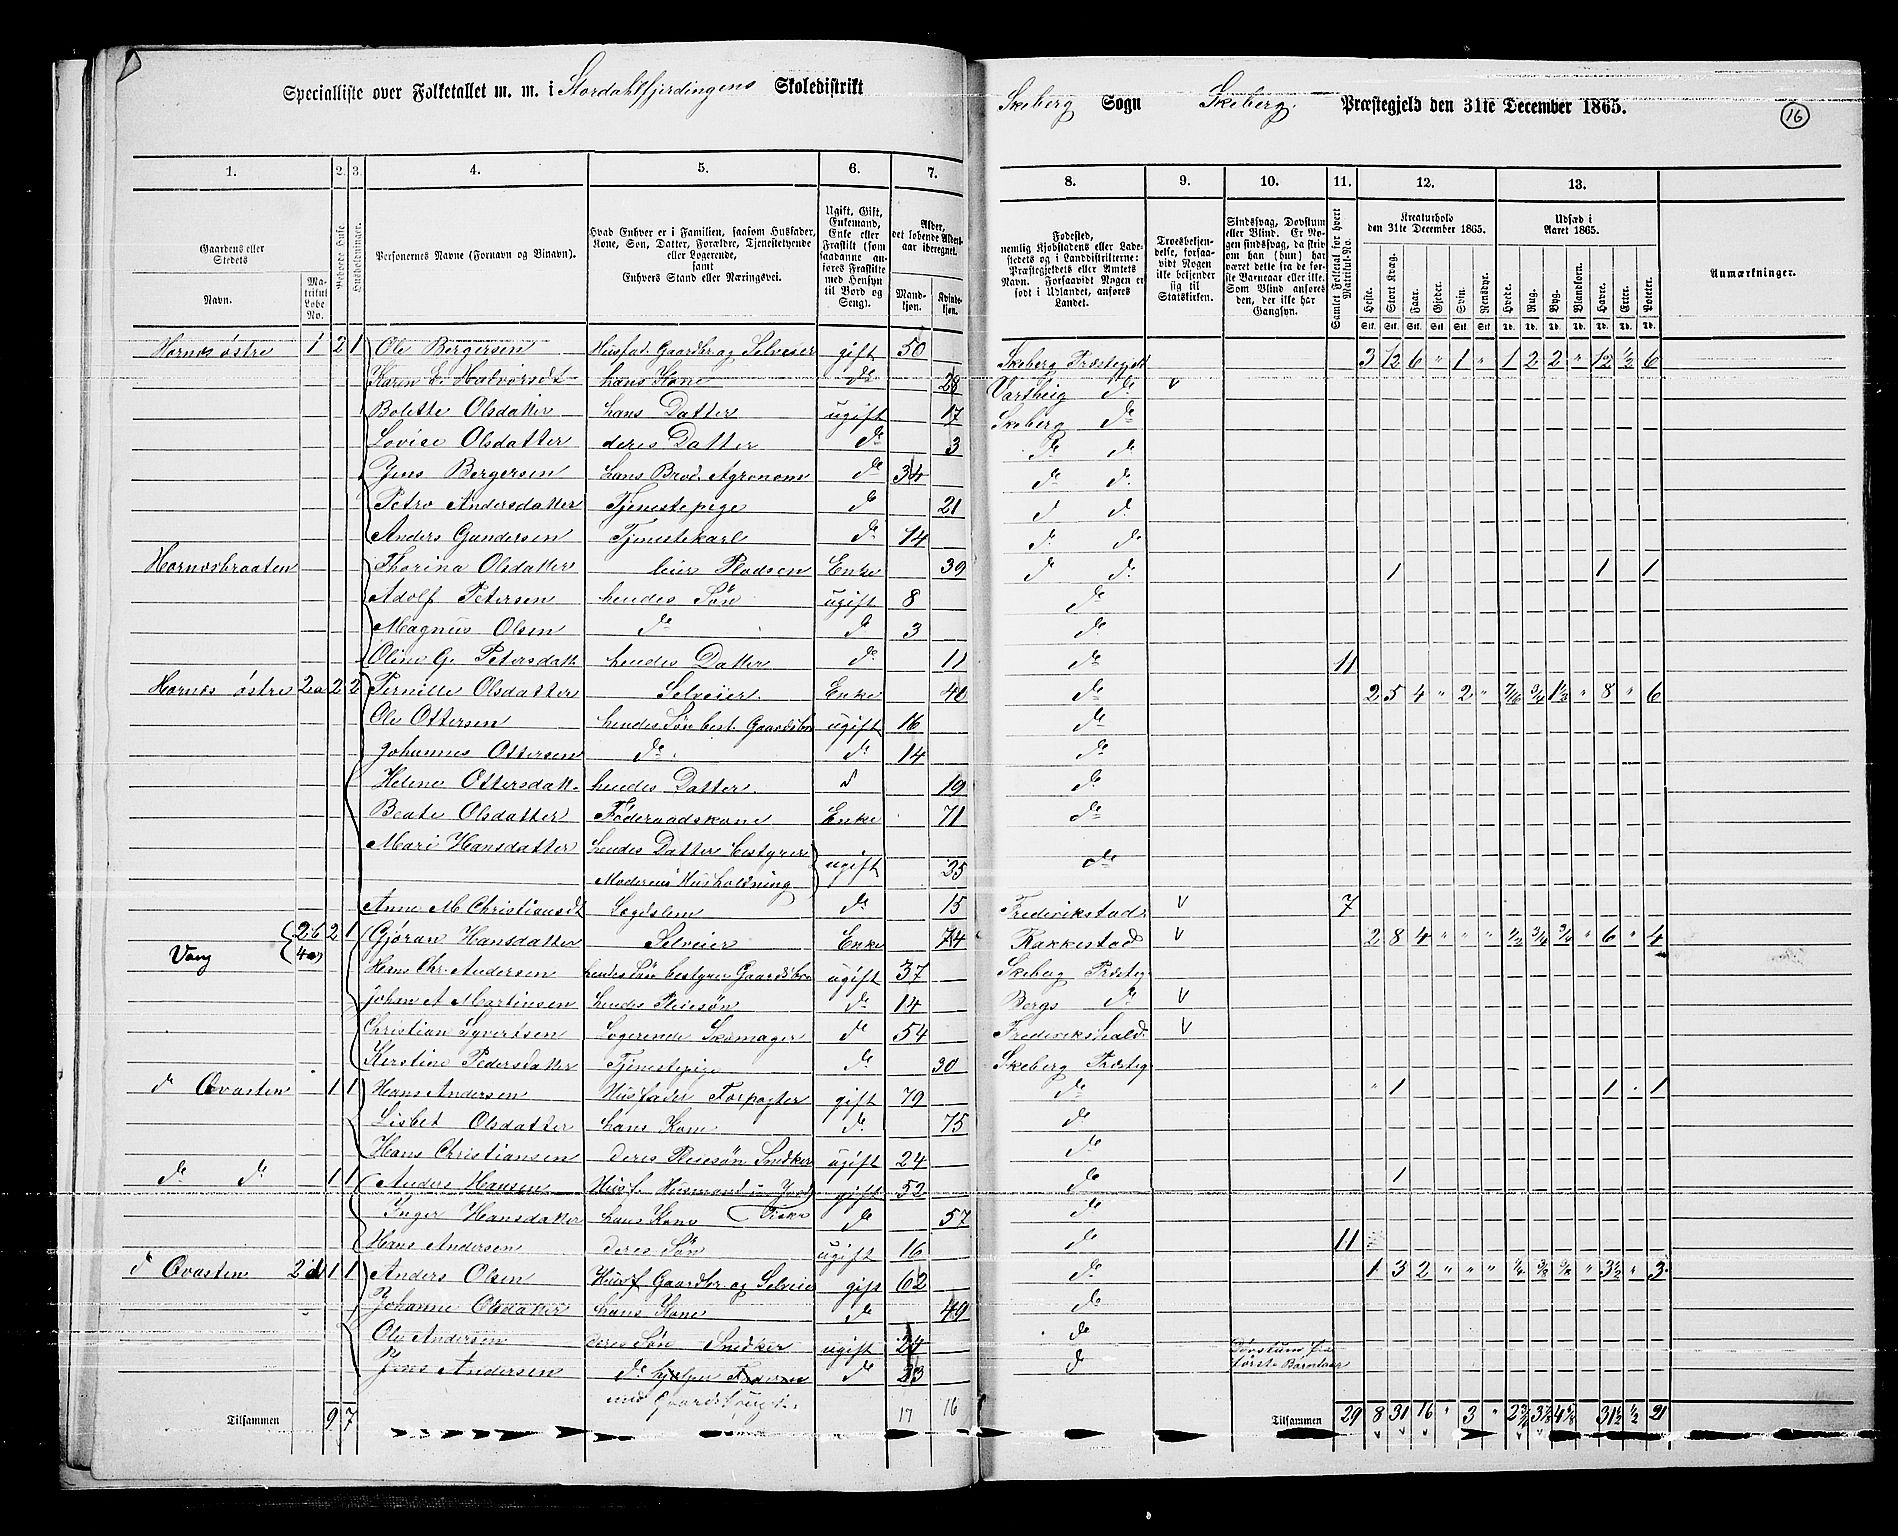 Specialliste over Folketallet m. m. i Stordahlfjerdingens Skoledistrikt
Skeberg Sogn Skeberg Præstegjeld den 31te December 1865. 16
1. 2. 3. 4. 5. 6. 7. 8. 9. 10. 11. 12. 13.
Gaardens eller Stedets
Navn.
Matrikul Løbe No.
Beboede Huse
Husholdninger.
Personernes Navne (Fornavn og Tilnavn).
Hvad Enhver er i Familien, saasom Husfader, Kone, Søn, Datter, Forældre, Tjenestetyende eller Logerende,
samt
Enhvers Stand eller Næringsvei.
Ugift, Gift, Enkemand, Enke eller Fraskilt (som saadanne anføres Fraskilte med Hensyn til Bord og Seng).
Alder, det løbende Aldersaar iberegnet.
Mandkjøn. Kvindekjøn.
Fødested, nemlig Kjøbstadens eller Ladestedets og i Landdistrikterne: Præstegjeldets eller Amtets Navn. Forsaavidt Nogen er født i Udlandet, anføres Landet.
Troesbekjendelse, forsaavidt Nogen ikke bekjender sig til Statskirken.
Sindssvag, Døvstum eller Blind. Er Nogen sindssvag, da skrives om han (hun) har været dette fra de første Barneaar eller ikke. Som Blind anføres den, der ikke har Gangsyn.
Samlet Folketal for hvert Matrikul-No.
Kreaturhold den 31te December 1865.
Heste. Stort Kvæg. Faar. Gjeder. Svin. Rensdyr.
Udsæd i Aaret 1865.
Hvede. Rug. Byg. Blandkorn. Havre. Erter. Poteter.
Anmærkninger.
Hornes østre 1 2 1 Ole Bergersen Husfad. Gaardbr. og Selveier gift 50 Skeberg Præstegjeld 3 12 6 " 1 " 1 2 2 " 12 1/2 6
Karen E. Halvorsdt hans Kone do 28 Varteig do v
Bolette Olsdatter hans Datter ugift 17 Skeberg do
Lovise Olsdatter deres Datter do 3 do do
Jens Bergersen hans Brod. Agronom do 34 do do
Petro Andersdatter Tjenestepige do 21 do do
Anders Gundersen Tjenestekarl do 14 do do
Hornesbraaten Thorina Olsdatter Enke 39 do do 1 1 1
Adolf Petersen hendes Søn ugift 8 do
Magnus Olsen do do 3 do
Oline G. Petersdatt. hendes Datter do 11 do 11
Hornes østre 2a 2 2 Pernille Olsdatter Selveier Enke 40 do 2 5 4 " 2 " 8 " 6
Ole Ottersen hendes Søn best. Gaardsbr ugift 16 do
Johannes Ottersen do do 14 do
Helene Ottersdatt. hendes Datter do 19 do
Beate Olsdatter Føderaadskone Enke 71 do
Mari Hansdatter hendes Datter bestyrer
Moderens Husholdning ugift 35 do
Anne M. Christiansdt Legdslem do 15 Frederikstad v 7
Vang 2b 4a 2 1 Gjøran Hansdatter Selveier Enke 74 Rakkestad v 2 8 4 " " " 1/2 3/4 3/4 " 6 " 4
Hans Chr. Andersen hendes Søn bestyrer Gaardsbr ugift 37 Skeberg Præsteg
Johan A Martinsen hendes Pleiesøn do 14 Bergs do v
Christian Syversen Logerende Skomager do 54 Frederikshald v
Kerstine Pedersdatter Tjenestepige do 30 Skeberg Præsteg
do Ovasten 1 1 Hans Andersen Husfader Forpagter gift 79 do " 1 1 1
Lisbet Olsdatter hans Kone do 75 do
Hans Christiansen deres Pleiesøn Snedker ugift 24 do
do do 1 1 Anders Hansen Husf. Husmand m Jord gift 52 do 1
Inger Hansdatter hans Kone Fisker do 57 do
Hans Andersen deres Søn ugift 16 do 11
do Ovasten 2d 1 1 Anders Olsen Husf Gaardbr. og Selveier gift 62 do 1 3 2 " " " 3 1/2 " 3
Johanne Olsdatter hans Kone do 49 do
Ole Andersen deres Søn Snedker ugift 24 do
Jens Andersen do hjelper Faderen do 23 do Døvstum første Barneaar
med Gaardsbruget
Tilsammen 9 7 17 16 Tilsammen 29 8 31 16 " 3 " 31 1/2 1/2 21